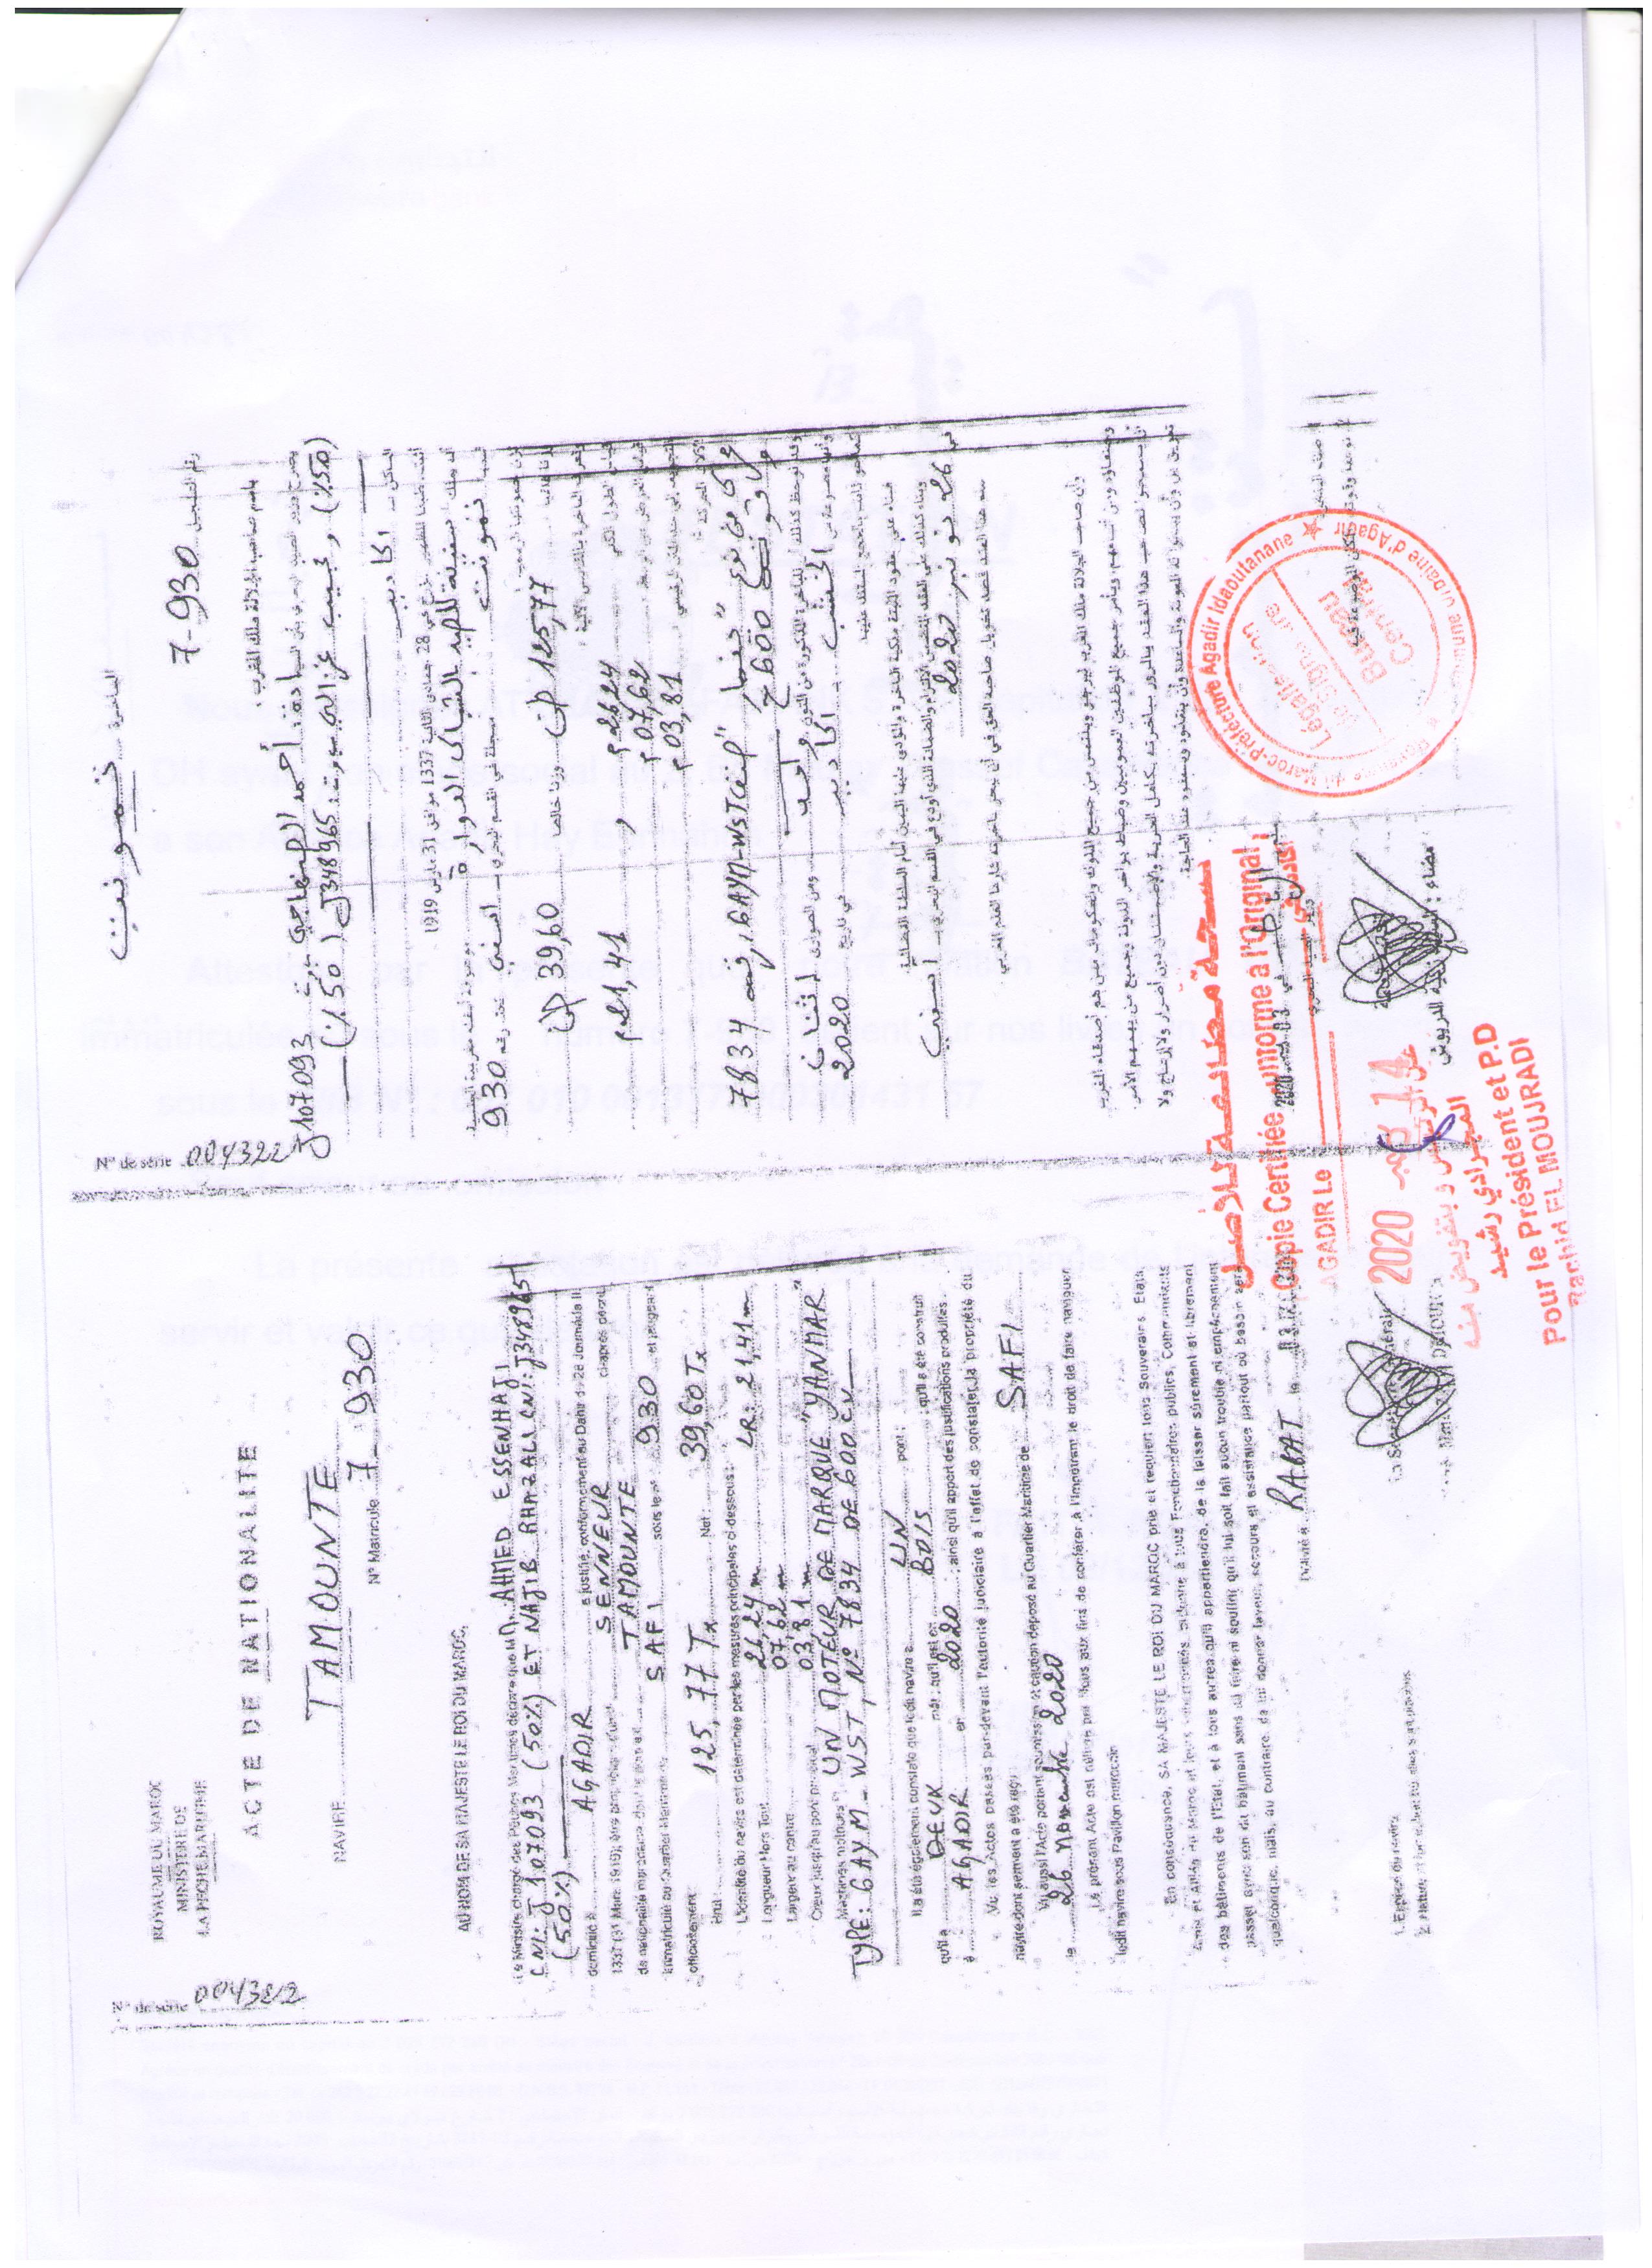 ROYAUME DU MAROC
MINISTERE DE
LA PECHE MARITIME
ACTE DE NATIONALITE
NAVIRE TAMOUNTE
N° Matricule 7-930
AU NOM DE SA MAJESTE LE ROI DU MAROC,
Le Ministre chargé des Pêches Maritimes déclare que M AHMED ESSENHAJI
CNI: J107093 (50%) ET NAJIB RHAZALI CNI: J348965
(50%)
domicilié à AGADIR a justifié, conformément au Dahir du 28 Joumada II
1337 (31 Mars 1919), être propriétaire d'un SENNEUR ci-après décrit,
de nationalité marocaine, dont le nom est TAMOUNTE
immatriculé au Quartier Maritime de SAFI sous le n° 930 et jaugeant
officiellement
Brut : 125,77 Tx Net : 39,60 Tx
L'identité du navire est déterminée par les mesures principales ci-dessous :
Longueur Hors Tout 26,24 m LR: 21,41 m
Largeur au centre 07,62 m
Creux jusqu'au pont principal 03,81 m
Machines motrices UN MOTEUR DE MARQUE "YANMAR"
TYPE: 6AYM-WST, N° 7834 DE 600 CV
Il a été également constaté que ledit navire a UN pont ;
qu'il a DEUX mât ; qu'il est en BOIS ; qu'il a été construit
à AGADIR en 2020 ; ainsi qu'il apport des justifications produites.
Vu les Actes passés par-devant l'autorité judiciaire à l'effet de constater la propriété du
navire dont serment a été reçu
Vu aussi l'Acte portant soumission et caution déposé au Quartier Maritime de SAFI
le 26 novembre 2020
Le présent Acte est délivré par Nous aux fins de conférer à l'impétrant le droit de faire naviguer
ledit navire sous Pavillon marocain
En conséquence, SA MAJESTE LE ROI DU MAROC prie et requiert tous Souverains, Etats,
Amis et Alliés du Maroc et leurs subordonnés, ordonne à tous Fonctionnaires publics, Commandants
des bâtiments de l'Etat, et à tous autres qu'il appartiendra, de la laisser sûrement et librement
passer avec son dit bâtiment sans lui faire ni souffrir qu'il lui soit fait aucun trouble ni empêchement
quelconque, mais, au contraire, de lui donner faveur, secours et assistance partout où besoin sera
RABAT le 03
La Secrétaire Générale
1. Espèce du navire
N° de série
الباخرة تمونت
رقم التسجيل 7-930
باسم صاحب الجلالة ملك المغرب ،
يصرح وزير الصيد البحري بأن السادة: أحمد الصنهاجي ب.و.ت J107093
(50%) و نجيب غزالي ب.و.ت: J348965 (50%)
الساكن بـ اكادير
أثبت طبقا للظهير المؤرخ في 28 جمادى الثانية 1337 موافق 31 مارس 1919
أنه يملك سفينة للصيد بالشباك الدوارة موصوفة أسفله مغربية الجنسية
تمونت مسجلة في القسم البحري بـ اسفي تحت رقم 930
125,77 طن وزنا خالصا 39,60 طن
وتعرف الباخرة بالمقاييس الآتية :
قياس الطول الكلي 26,24 م و 21,41 م
07,62 م
03,81 م
محرك من نوع "ينمار" صنف 6AYM-WST، رقمه 7834
و قوته 600 ح
وقد لوحظ كذلك أن للباخرة المذكورة من المتون واحد ومن الصواري اثنان
وأنها مصنوعة من الخشب بـ اكادير في تاريخ 2020
كما هو ثابت بالحجج المستند عليها.
فبناء على عقود المثبتة ملكية الباخرة والمؤدى عليها اليمين أمام السلطة القضائية.
وبناء كذلك على العقد المتضمن الالتزام والضمانة الذي أودع في القسم البحري بـ أسفي
في 26 نونبر 2020
سلم هذا العقد قصد تخويل صاحبه الحق في أن يبحر بباخرته شارعا العلم المغربي .
وأن صاحب الجلالة ملك المغرب ليرجو ويلتمس من جميع الملوك والحكومات ممن هم أصدقاء المغرب
وحلفاؤه ومن أتباعهم، ويأمر جميع الموظفين العموميين وضباط بواخر الدولة وجميع من يهمهم الأمر
أن يسمحوا لصاحب هذا العقد بالمرور بباخرته بكامل الحرية والإطمئنان دون أضرار ولا إزعاج ولا
تعويق بل وأن يبذلوا له المعونة والمساعدة وأن ينقذوه ويسعفوه عند الحاجة.
الرباط في 03 2020
وزير الصيد البحري
إمضاء : السيدة زكية الدريوش
نسخة مطابقة للأصل
Copie Certifiée conforme à l'Original
أكادير في
AGADIR Le
14 دجنبر 2020
عن الرئيس و بتفويض منه
المجرادي رشيد
Pour le Président et P.D
Rachid EL MOUJRADI
Royaume du Maroc-Préfecture Agadir Idaoutanane
Commune Urbaine d'Agadir
Légalisation
de Signature
Bureau
Central